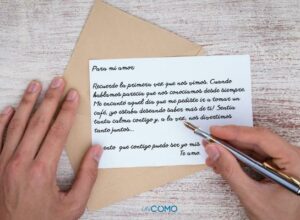 Para mi amor
Recuerdo la primera vez que nos vimos. Cuando
hablamos parecía que nos conocíamos desde siempre.
Me encantó aquel día que me pediste ir a tomar un
café, ¡yo estaba deseando saber más de ti! Sentía
tanta calma contigo y, a la vez, nos divertimos
tanto juntos...
ento que contigo puedo ser yo mis
Te amo.
unCOMO